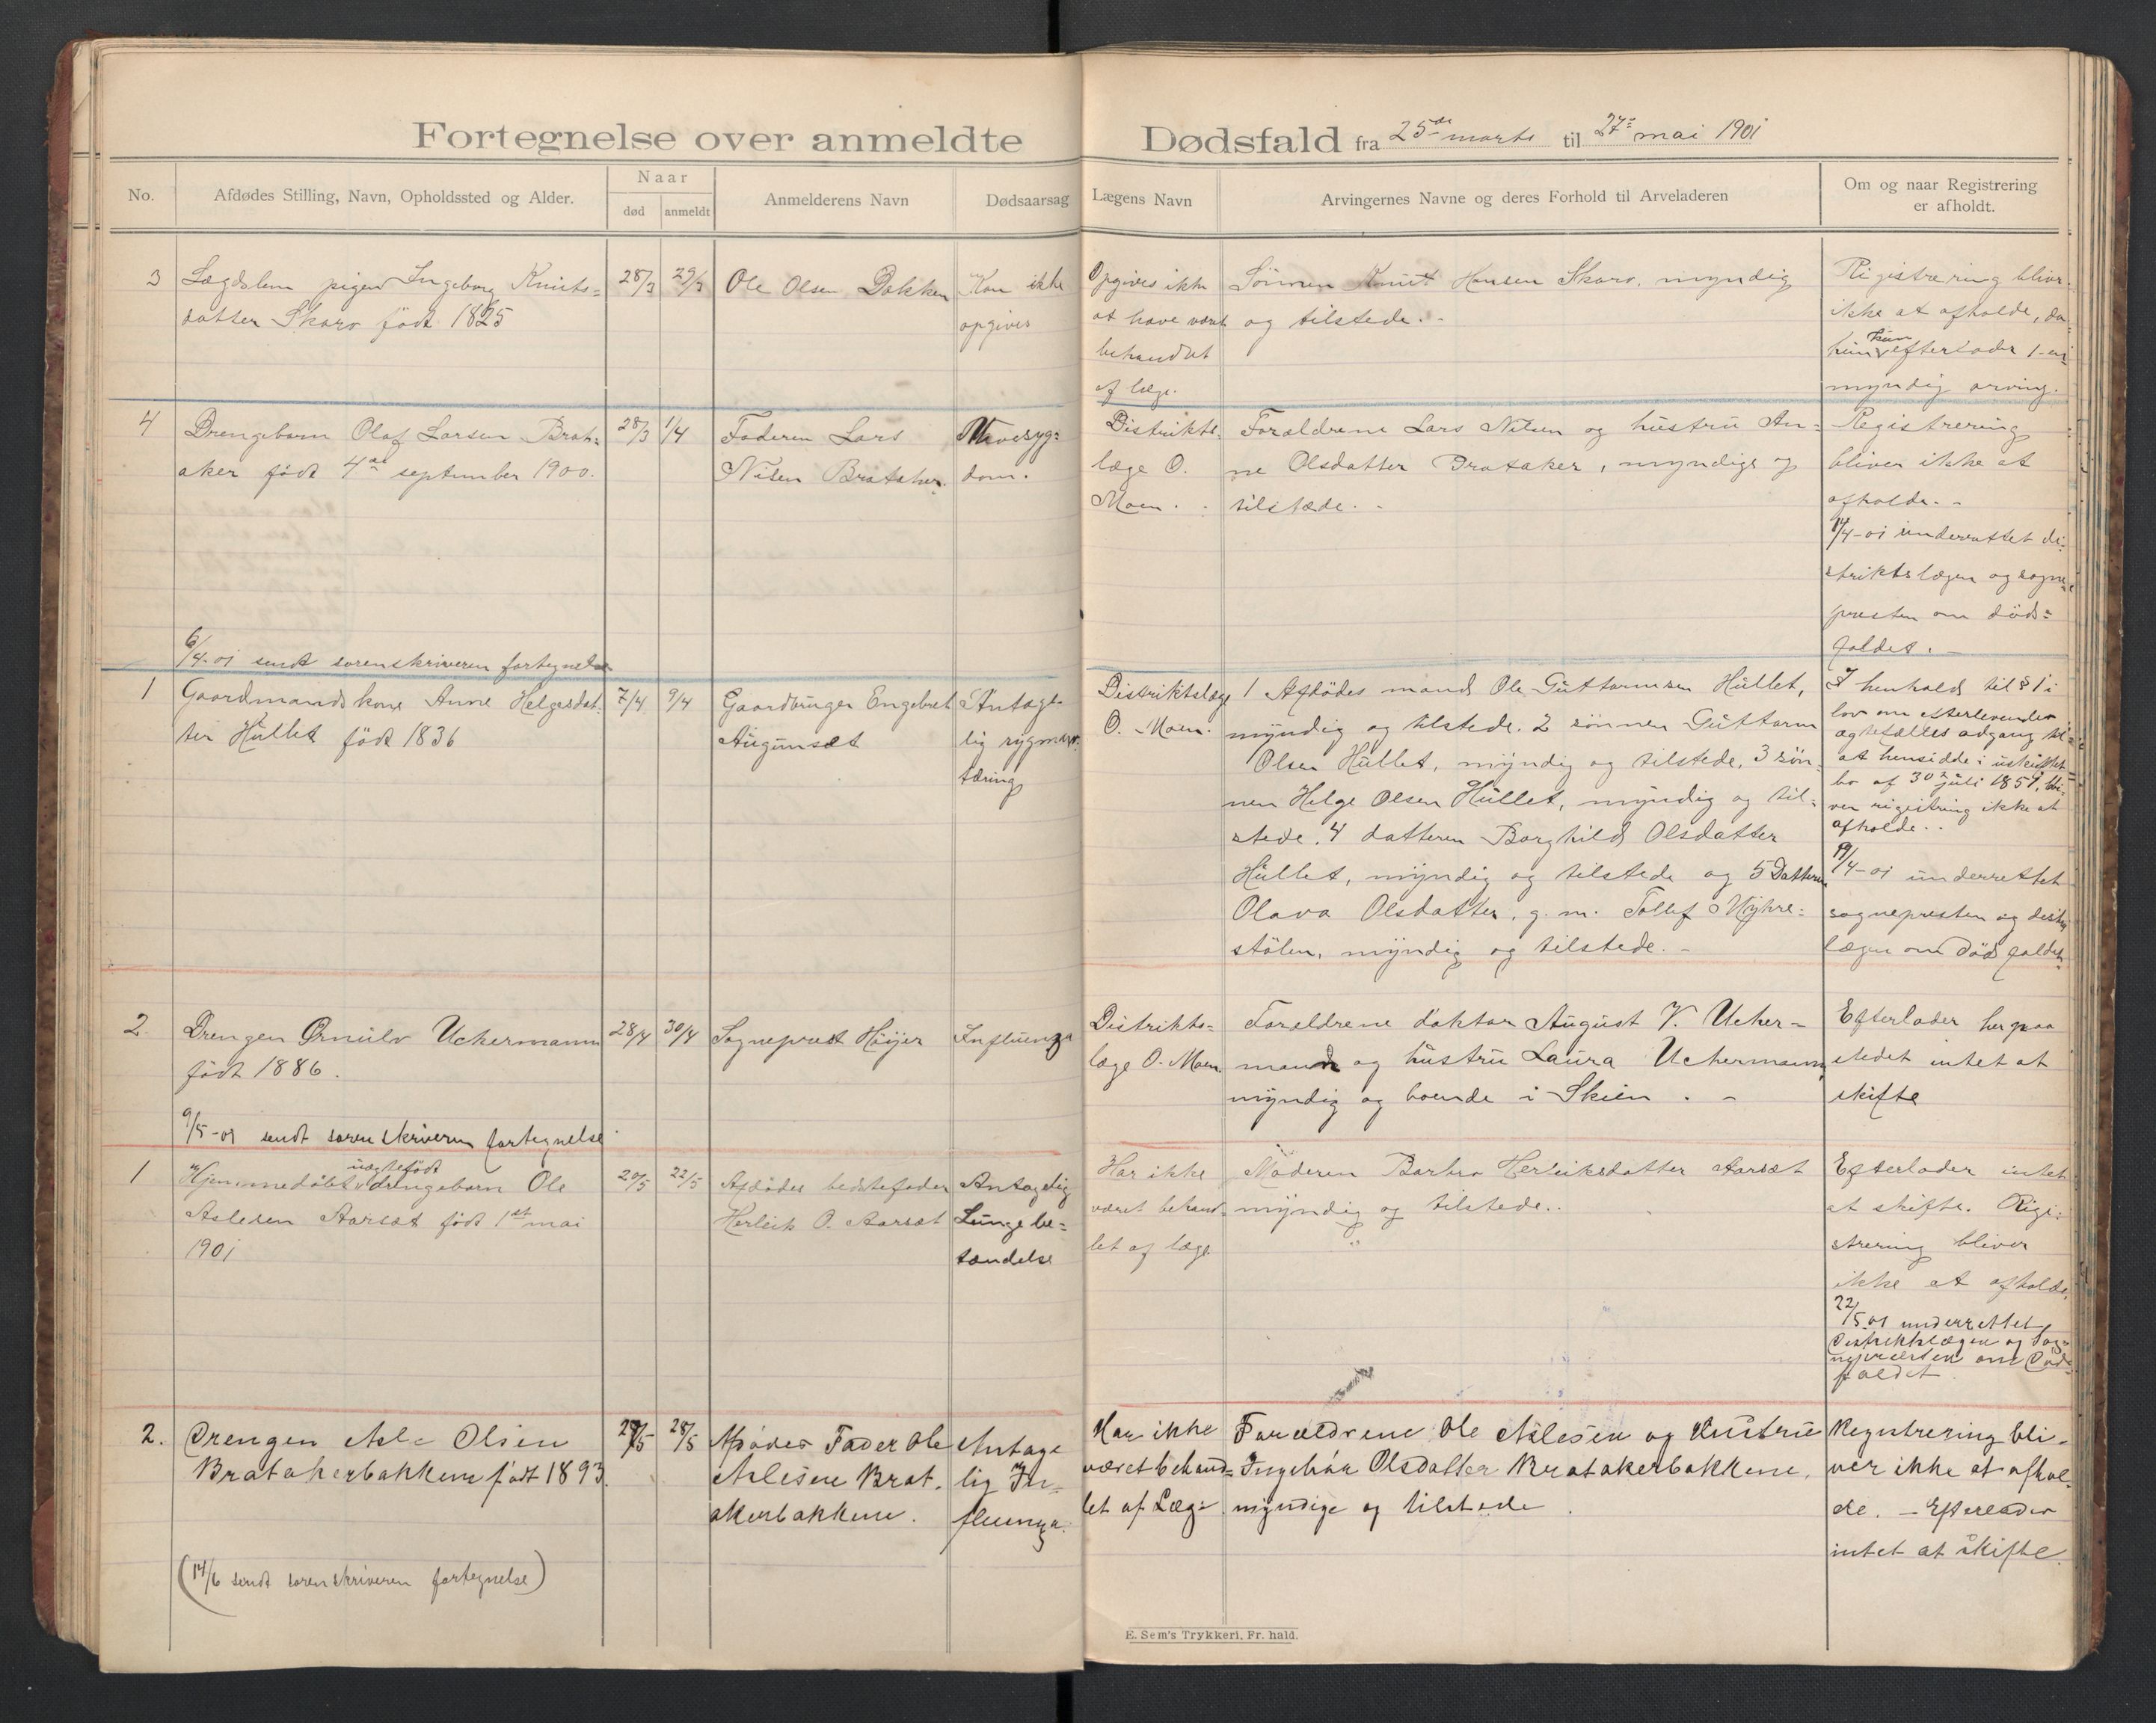 Fortegnelse over anmeldte Dødsfald fra 25de marts til 27de mai 1901
No.
Afdødes Stilling, Navn, Opholdssted og Alder.
Naar
død
anmeldt
Anmelderens Navn
Dødsaarsag
Lægens Navn
Arvingernes Navne og deres Forhold til Arveladeren
Om og naar Registrering
er afholdt.
3
Lægdslem pigen Ingeborg Knuts=
datter Skaro født 1825
28/3
29/3
Ole Olsen Dokken
Kan ikke
opgives
Opgives ikke
at have været
behandlet
af læge.
Sönnen Knut Hansen Skaro, myndig
og tilstede.
Registrering bliver
ikke at afholde, da
hun kun efterlader 1 en
myndig arving.
4
Drengebarn Olaf Larsen Brat=
aker född 4de september 1900.
28/3
1/4
Faderen Lars
Nilsen Brataker.
Nervesyg=
dom.
Distrikts=
læge O.
Moen.
Forældrene Lars Nilsen og hustru An=
ne Olsdatter Brataker, myndige og
tilstæde.
Registrering
bliver ikke at
afholde.
14/4-01 underrettet di=
striktslægen og sogne
presten om döds=
faldet.
6/4-01 sendt sorenskriveren fortegnelse
1
Gaardmandskone Anne Helgesdat=
ter Hullet född 1836
7/4
9/4
Gaardbruger Engebret
Augunset
Antage=
lig rygmarvs
tæring
Distriktslæge
O. Moen.
1 Afdödes mand Ole Guttormsen Hullet,
myndig og tilstede. 2 sönnen Guttorm
Olsen Hullet, myndig og tilstede, 3 sön=
nen Helge Olsen Hullet, myndig og til=
stede. 4 datteren Borghild Olsdatter
Hullet, myndig og tilstede og 5 Datteren
Olava Olsdatter, g. m. Tollef Myhre=
stölen, myndig og tilstede.
I henhold til § 1 i
lov om efterlevendes
ægtefælles adgang til
at hensidde i uskiftet
bo af 30te juli 1851, bli=
ver rigestring ikke at
afholde.
19/4-01 underrettet
sognepresten og distr.
lægen om dödsfaldet.
2.
Drengen Ørnulv Uchermann
födt 1886.
28/4
30/4
Sogneprest Höyer
Influenza
Distrikts=
læge O. Moen.
Foreldrene doktor August V. Ucher=
mann og hustru Laura Uchermann,
myndig og boende i Skien.
Efterlader her paa
stedet intet at
skifte
9/5-01 sendt sorenskriveren fortegnelse
1
uægtefödt
Hjemmedöbt drengebarn Ole
Aslesen Aarset född 1ste mai
1901
20/5
22/5
Afdödes bedstefader
Herleik O. Aarset
Antagelig
Lungebe=
tændelse
Har ikke
været behand=
let af læge
Moderen Barbro Herleiksdatter Aarset
myndig og tilstede.
Efterlader intet
at skifte. Rigi=
strering bliver
ikke at afholde.
22/5 01 underrettet
Distriktslægen og Sog=
nepræsten om Døds=
faldet
2.
Drengen Asle Olsen
Bratakerbakkene født 1893.
27/5
28/5
Afdødes Fader Ole
Aslesen Brat=
akerbakkene.
Antage
lig In=
fluenza.
Har ikke
været behand=
let af Læge
Forældrene Ole Aslesen og Hustru
Ingebör Olsdatter Bratakerbakkene,
myndige og tilstede.
Registrering bli=
ver ikke at afhol=
de. - Efterlader
intet at skifte.
(14/6 sendt sorenskriveren fortegnelse)
E. Sem's Trykkeri, Fr.hald.